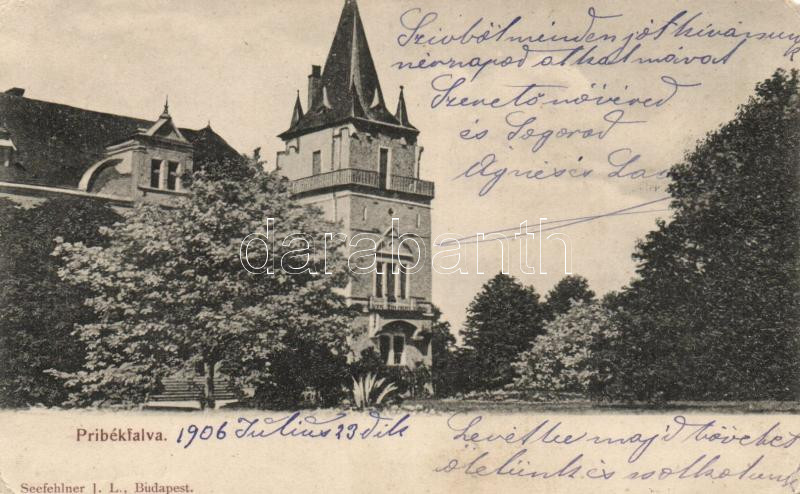 Szivből minden jót kívánunk
névnapod alkalmával
Szerető nővéred
és Sogorod
Ágnes és
darabanth
Pribékfalva.
1906 Julius 23 dik
Levélbe majd bővebbet
ölelünk és
Seefehlner J. L., Budapest.